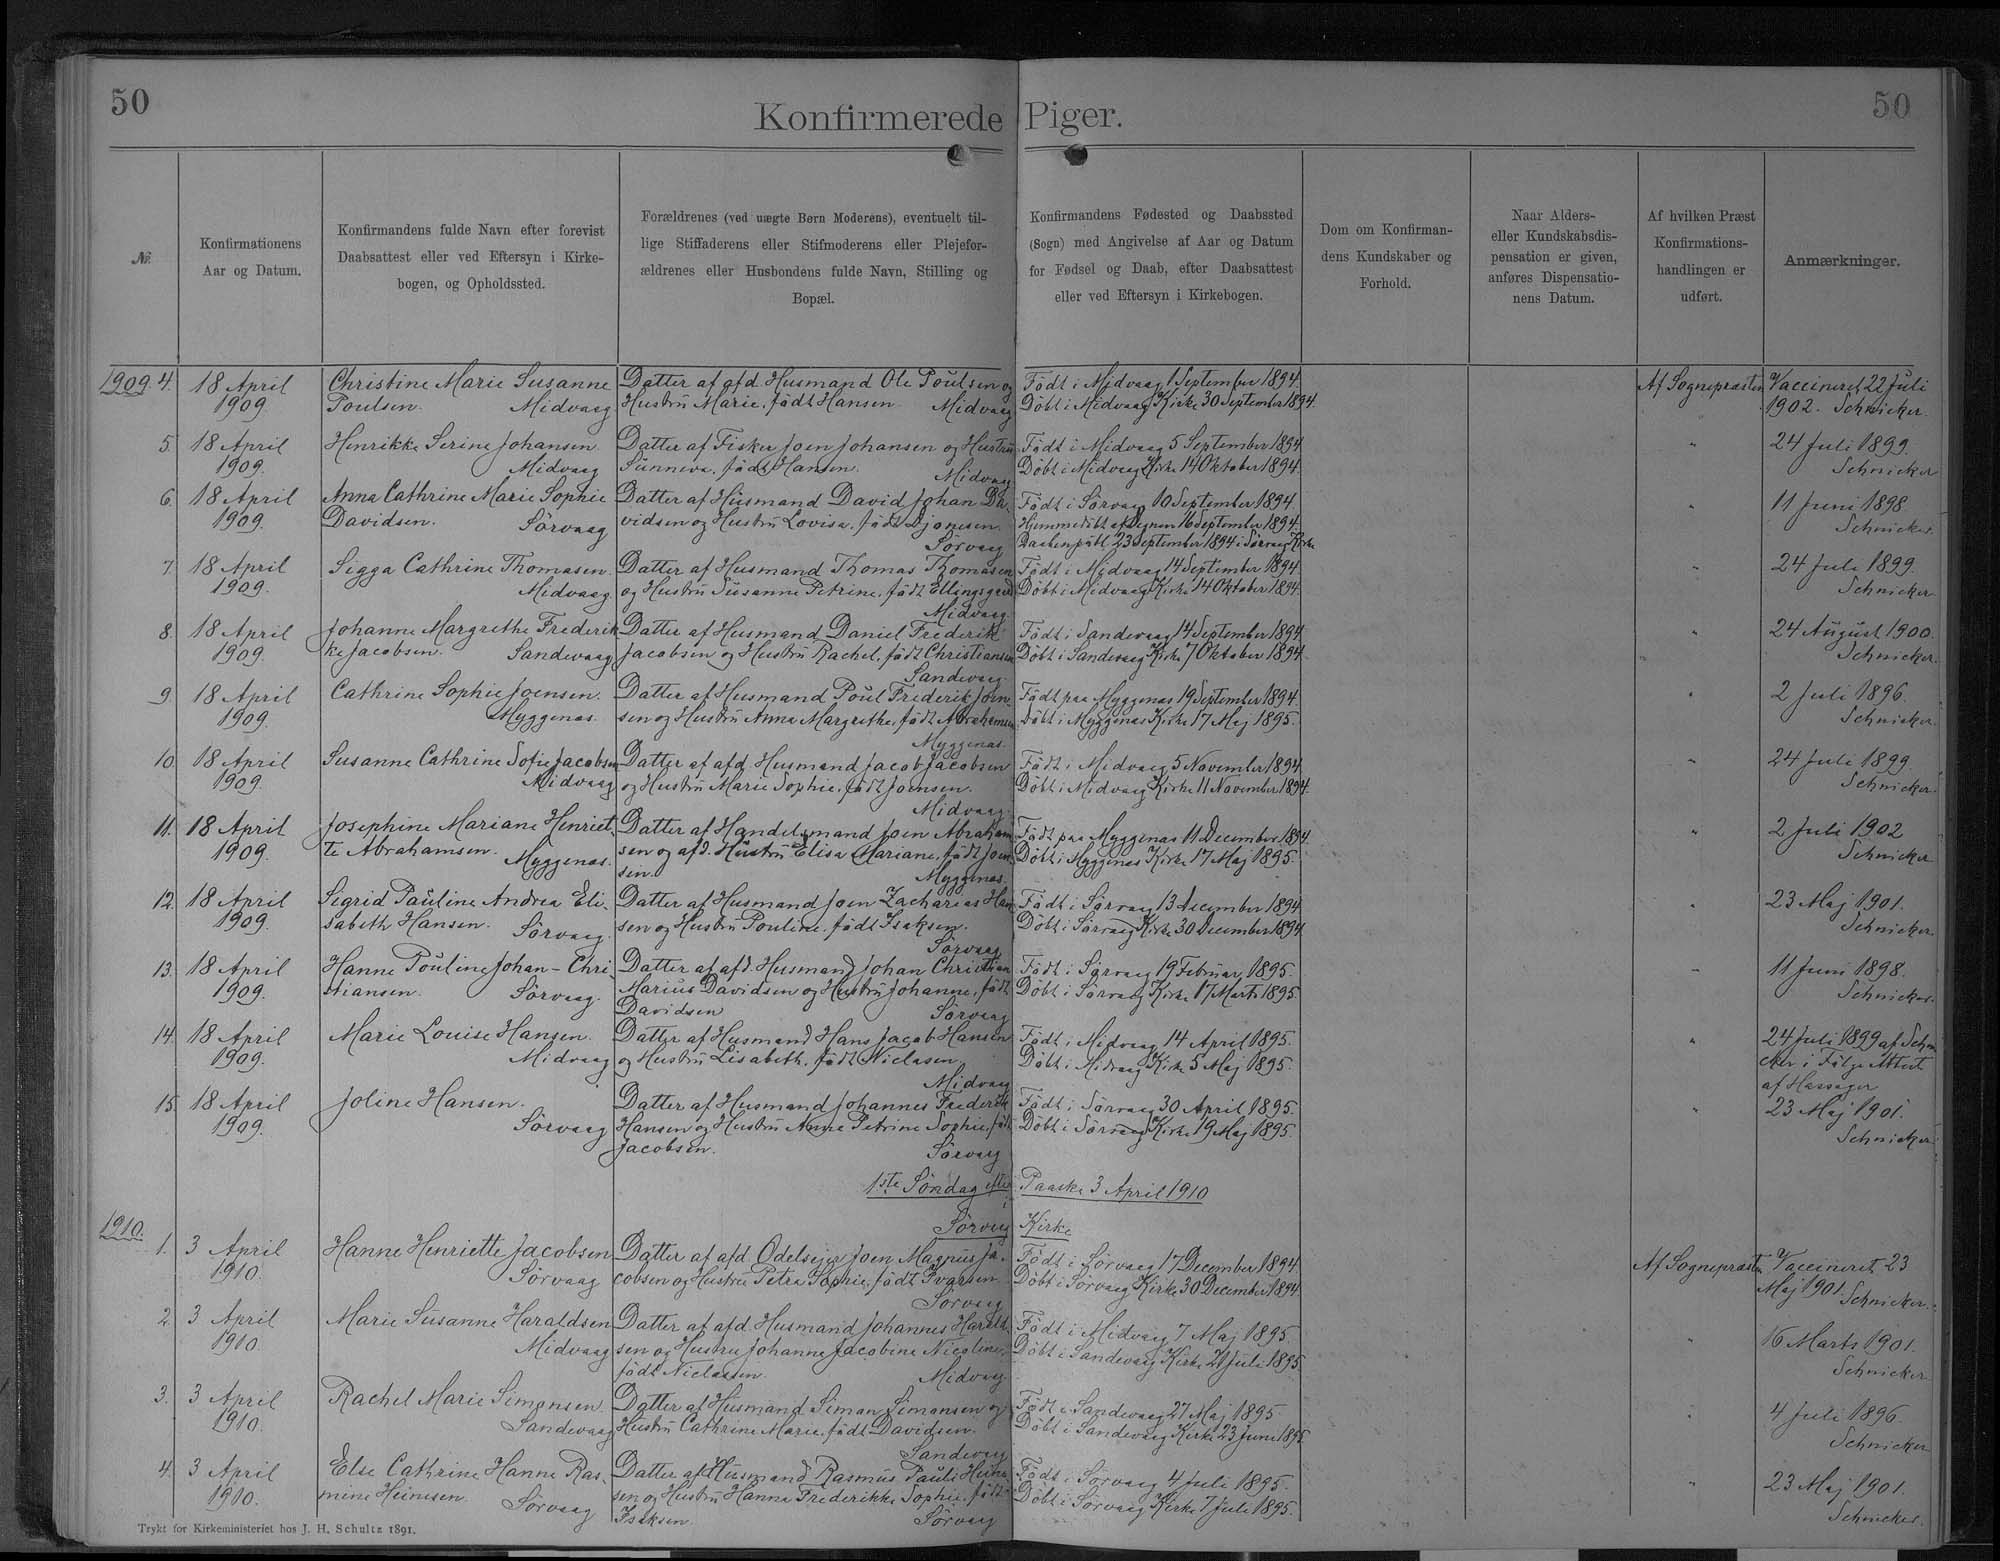 50
Konfirmerede Piger.
50
№
Konfirmationens
Aar og Datum.
Konfirmandens fulde Navn efter forevist
Daabsattest eller ved Eftersyn i Kirke-
bogen, og Opholdssted.
Forældrenes (ved uægte Børn Moderens), eventuelt til-
lige Stiffaderens eller Stifmoderens eller Plejefor-
ældrenes eller Husbondens fulde Navn, Stilling og
Bopæl.
Konfirmandens Fødested og Daabssted
(Sogn) med Angivelse af Aar og Datum
for Fødsel og Daab, efter Daabsattest
eller ved Eftersyn i Kirkebogen.
Dom om Konfirman-
dens Kundskaber og
Forhold.
Naar Alders-
eller Kundskabsdis-
pensation er given,
anføres Dispensatio-
nens Datum.
Af hvilken Præst
Konfirmations-
handlingen er
udført.
Anmærkninger.
1909. 4. 18 April Christine Marie Susanne Datter af afd. Husmand Ole Poulsen og Født i Midvaag 1 September 1894. Af Sognepræsten Vaccineret 22 Juli
1909. Poulsen. Midvaag Hustru Marie, født Hansen. Midvaag Döbt i Midvaag Kirke 30 September 1894. 1902. Schnicker.
5. 18 April Henrikke Serine Johansen. Datter af Fisker Joen Johansen og Hustru Født i Midvaag 5 September 1894. " 24 Juli 1899.
1909. Midvaag Sunneva, født Hansen. Midvaag Döbt i Midvaag Kirke 14 Oktober 1894. Schnicker
6. 18 April Anna Cathrine Marie Sophie Datter af Husmand David Johan Da- Født i Sörvaag 10 September 1894. " 11 Juni 1898.
1909. Davidsen. Sörvaag vidsen og Hustru Lovisa, født Djonesen. Hjemmedöbt af Degnen 16 September 1894. Schnicker.
Sörvaag Daaben publ. 23 September 1894 i Sörvaag Kirke
7. 18 April Sigga Cathrine Thomasen. Datter af Husmand Thomas Thomasen Født i Midvaag 14 September 1894. " 24 Juli 1899.
1909. Midvaag. og Hustru Susanne Petrine, født Ellingsgaard Döbt i Midvaag Kirke 14 Oktober 1894. Schnicker
Midvaag.
8. 18 April Johanne Margrethe Frederik- Datter af Husmand Daniel Frederik Født i Sandevaag 14 September 1894. " 24 August 1900.
1909. ke Jacobsen. Sandevaag Jacobsen og Hustru Rachel, født Christiansen Döbt i Sandevaag Kirke 7 Oktober 1894. Schnicker.
Sandevaag.
9. 18 April Cathrine Sophie Joensen. Datter af Husmand Poul Frederik Joen- Født paa Myggenæs 19 September 1894. " 2 Juli 1896.
1909. Myggenæs. sen og Hustru Anna Margrethe, født Abrahamsen Döbt i Myggenæs Kirke 17 Maj 1895. Schnicker.
Myggenæs.
10. 18 April Susanne Cathrine Sofie Jacobsen Datter af afd. Husmand Jacob Jacobsen Født i Midvaag 5 November 1894. " 24 Juli 1899.
1909. Midvaag og Hustru Marie Sophie, født Joensen. Döbt i Midvaag Kirke 11 November 1894. Schnicker.
Midvaag.
11. 18 April Josephine Mariane Henriet- Datter af Handelsmand Joen Abraham- Født paa Myggenæs 11 December 1894. " 2 Juli 1902
1909. te Abrahamsen. Myggenæs. sen og afd. Hustru Elisa Mariane, født Joen- Döbt i Myggenæs Kirke 17 Maj 1895. Schnicker
sen. Myggenæs.
12. 18 April Sigrid Pauline Andrea Eli- Datter af Husmand Joen Zacharias Han- Født i Sörvaag 13 December 1894. " 23 Maj 1901.
1909. sabeth Hansen. Sörvaag. sen og Hustru Pouline, født Isaksen. Döbt i Sörvaag Kirke 30 December 1894. Schnicker
Sörvaag
13. 18 April Hanne Pouline Johan-Chri- Datter af afd. Husmand Johan Christian Født i Sörvaag 19 Februar 1895. " 11 Juni 1898.
1909. stiansen. Sörvaag. Marius Davidsen og Hustru Johanne, født Döbt i Sörvaag Kirke 17 Marts 1895. Schnicker.
Davidsen Sörvaag
14. 18 April Marie Louise Hansen. Datter af Husmand Hans Jacob Hansen Født i Midvaag 14 April 1895. " 24 Juli 1899 af Schni-
1909. Midvaag og Hustru Lisabeth, født Niclasen. Döbt i Midvaag Kirke 5 Maj 1895. cker i Følge Attest
Midvaag af
15. 18 April Joline Hansen. Datter af Husmand Johannes Frederik Født i Sörvaag 30 April 1895. " 23 Maj 1901.
1909. Sörvaag Hansen og Hustru Anne Petrine Sophie, født Döbt i Sörvaag Kirke 19 Maj 1895. Schnicker
Jacobsen. Sörvaag
1ste Söndag efter Paaske 3 April 1910
i Sörvaag Kirke
1910.
1. 3 April Hanne Henriette Jacobsen Datter af afd. Odelsejer Joen Magnus Ja- Født i Sörvaag 17 December 1894 Af Sognepræsten Vaccineret 23
1910. Sörvaag cobsen og Hustru Petra Sophie, født Ivarsen. Döbt i Sörvaag Kirke 30 December 1894 Maj 1901. Schnicker.
Sörvaag
2 3 April Marie Susanne Haraldsen Datter af afd. Husmand Johannes Harald- Født i Midvaag 7 Maj 1895. " 16 Marts 1901.
1910. Midvaag sen og Hustru Johanne Jacobine Nicoline, Döbt i Sandevaag Kirke 21 Juli 1895. Schnicker
født Niclasen. Midvaag
3. 3 April Rachel Marie Simonsen Datter af Husmand Simon Simonsen og Født i Sandevaag 27 Maj 1895. " 4 Juli 1896.
1910. Sandevaag Hustru Cathrine Marie, født Davidsen. Döbt i Sandevaag Kirke 23 Juni 1895. Schnicker
Sandevaag
4. 3 April Else Cathrine Hanne Ras- Datter af Husmand Rasmus Pauli Heine- Født i Sörvaag 4 Juli 1895. " 23 Maj 1901.
1910. mine Heinesen. Sörvaag sen og Hustru Hanna Frederikke Sophie, født Döbt i Sörvaag Kirke 7 Juli 1895. Schnicker.
Isaksen. Sörvaag
Trykt for Kirkeministeriet hos J. H. Schultz 1891.